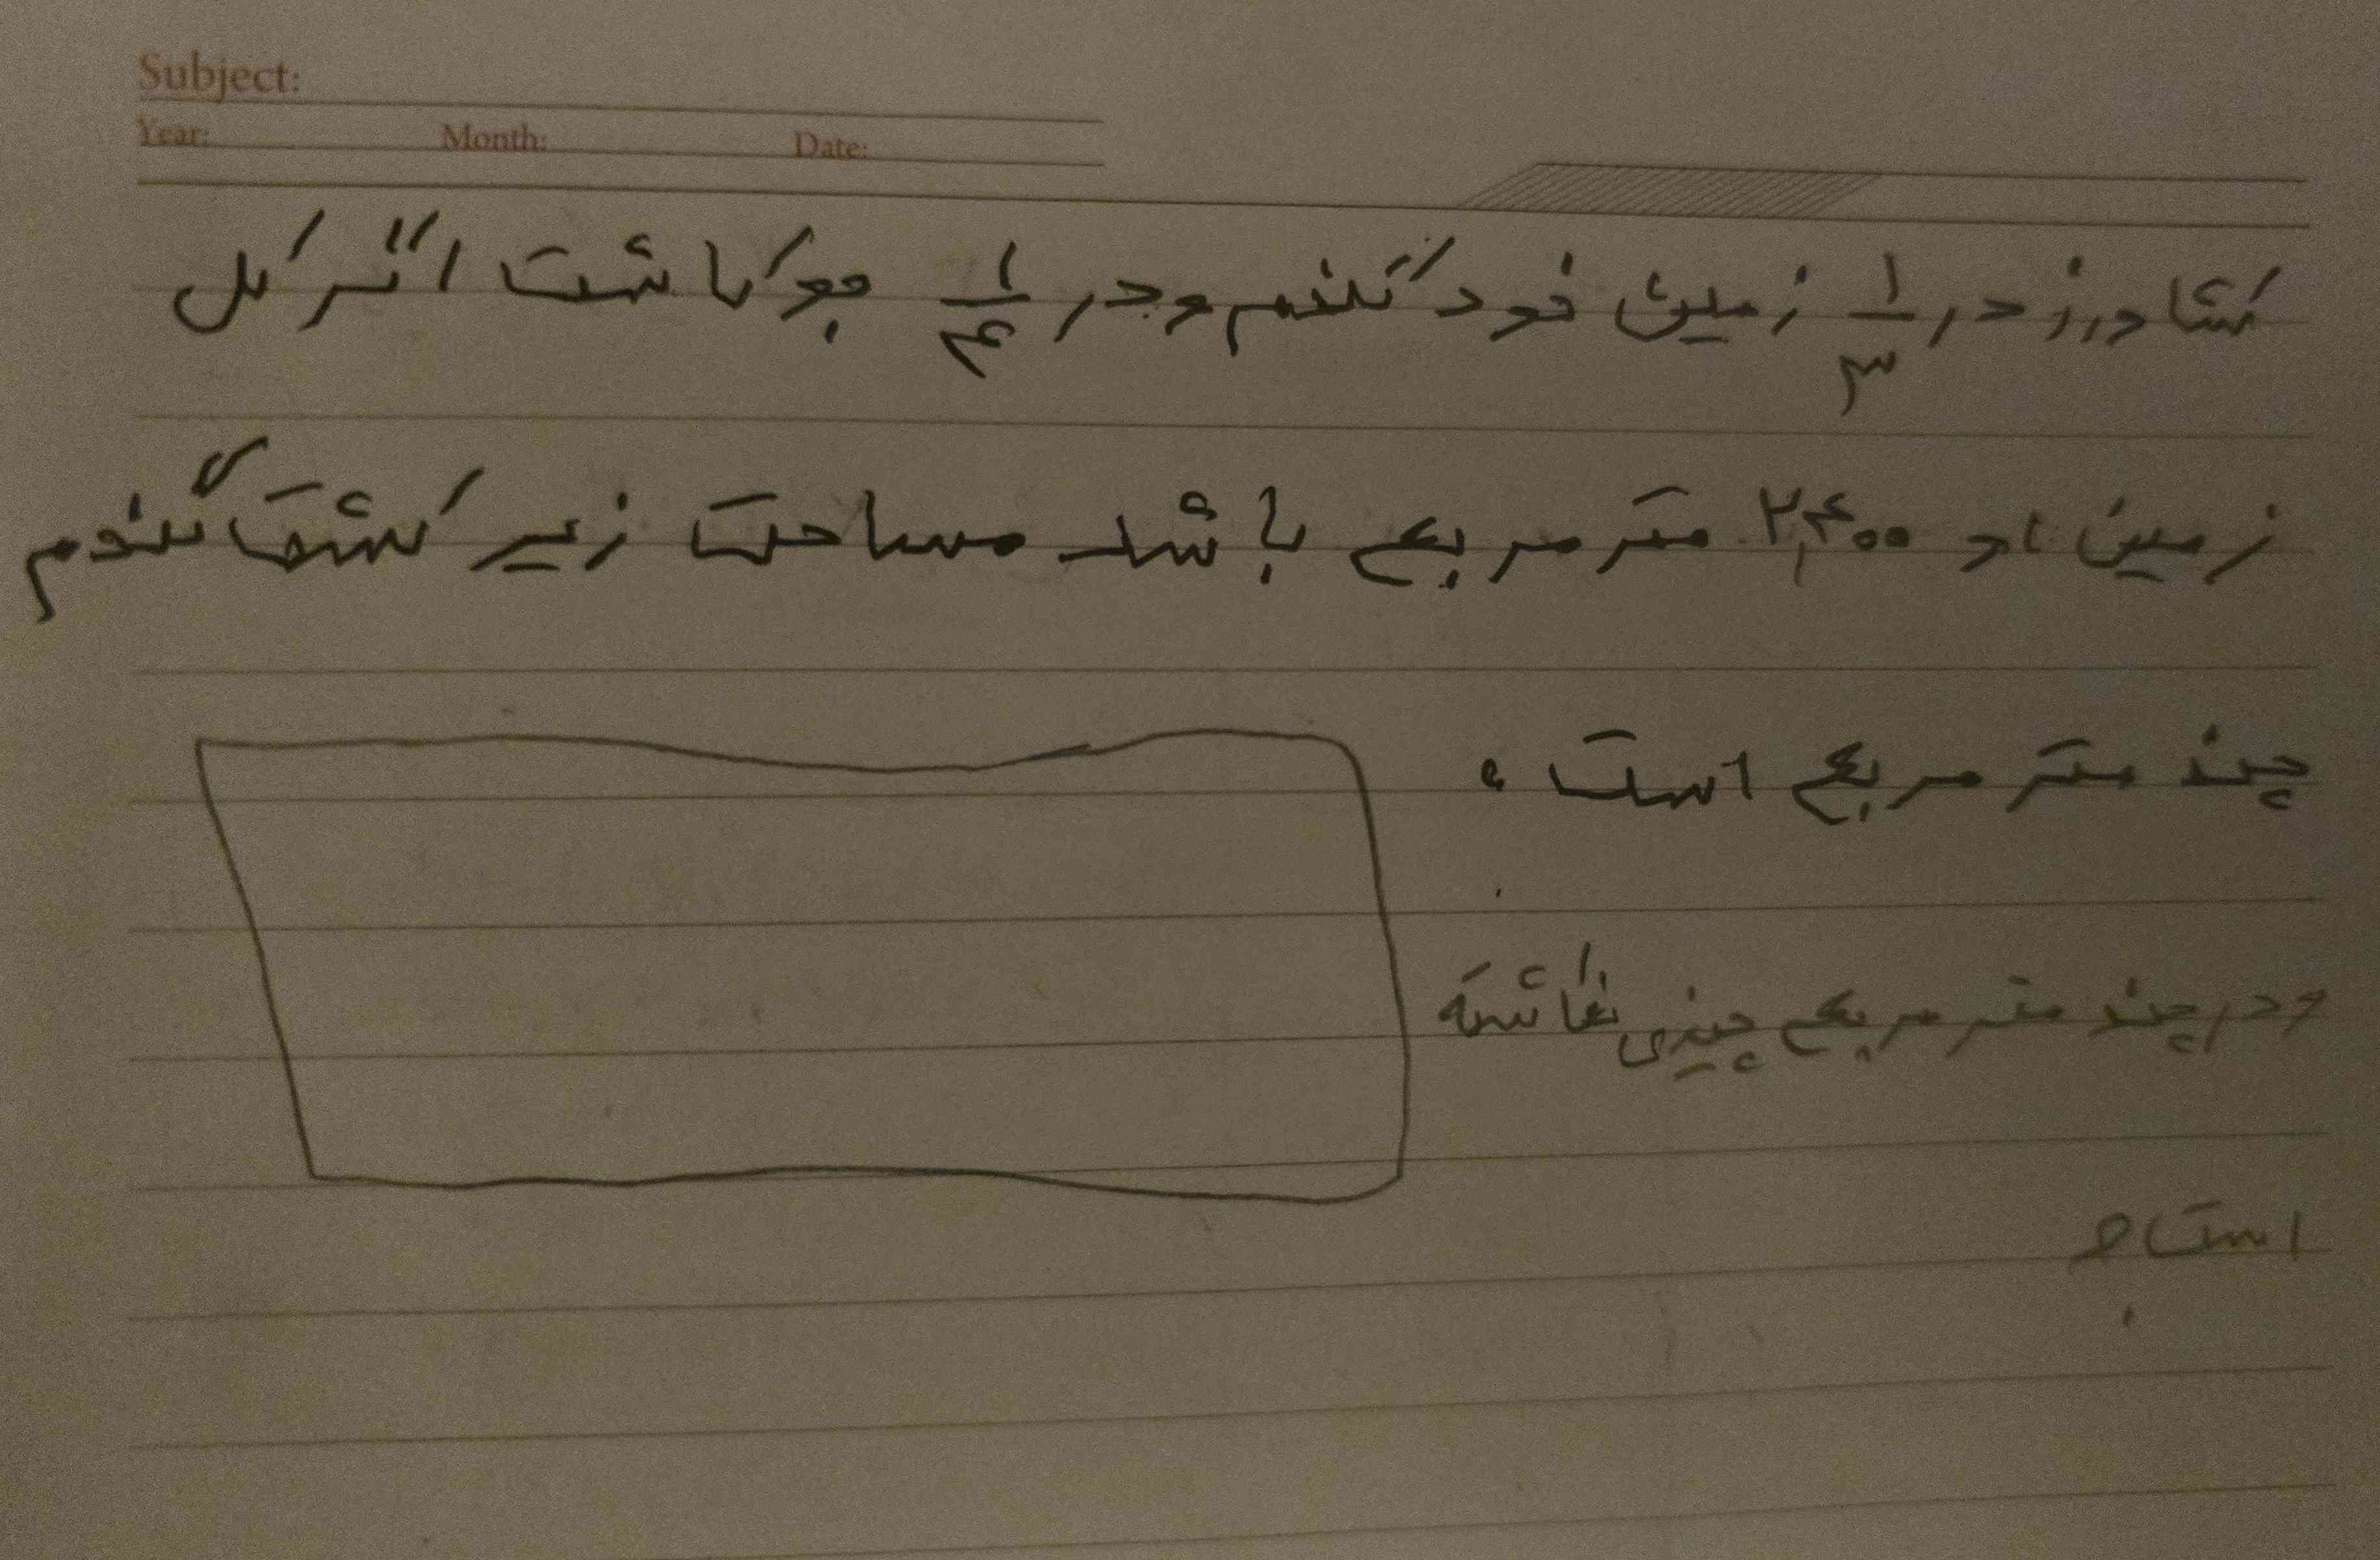 Subject:
Year: Month: Date:
کشاورز در ۱/۳ زمین خود گندم و در ۱/۴ جو کاشت اگر کل
زمین او ۲,۴۰۰ متر مربع باشد مساحت زیر کشت گندم
چند متر مربع است ؟
و در چند متر مربع چیزی نکاشته
است ؟